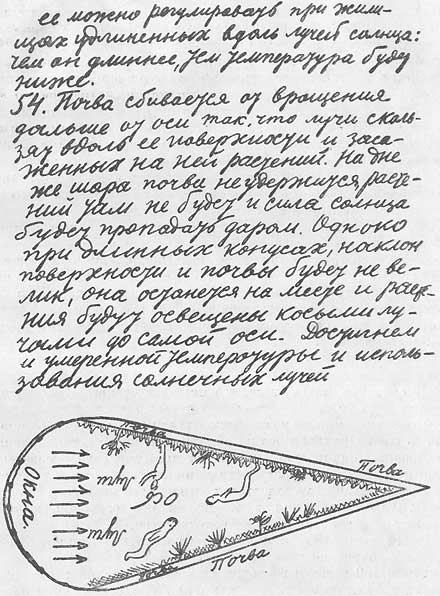 ее можно регулировать при жили-
щах удлиненных вдоль лучей солнца:
чем он длиннее, тем температура буде
ниже.
54. Почва сбивается от вращения
дальше от оси так, что лучи сколь-
зят вдоль ее поверхности и заса-
женных на ней растений. На дне
же шара почва не удержится, расте-
ний там не будет и сила солнца
будет пропадать даром. Одноко
при длинных конусах, наклон
поверхности и почвы будет не ве-
лик, она останется на месте и расте-
ния будут освещены косыми лу-
чами до самой оси. Достигнем
и умеренной температуры и исполь-
зования солнечных лучей
Почва
Почва
Окна.
Лучи
Ось
Лучи
Почва
Почва